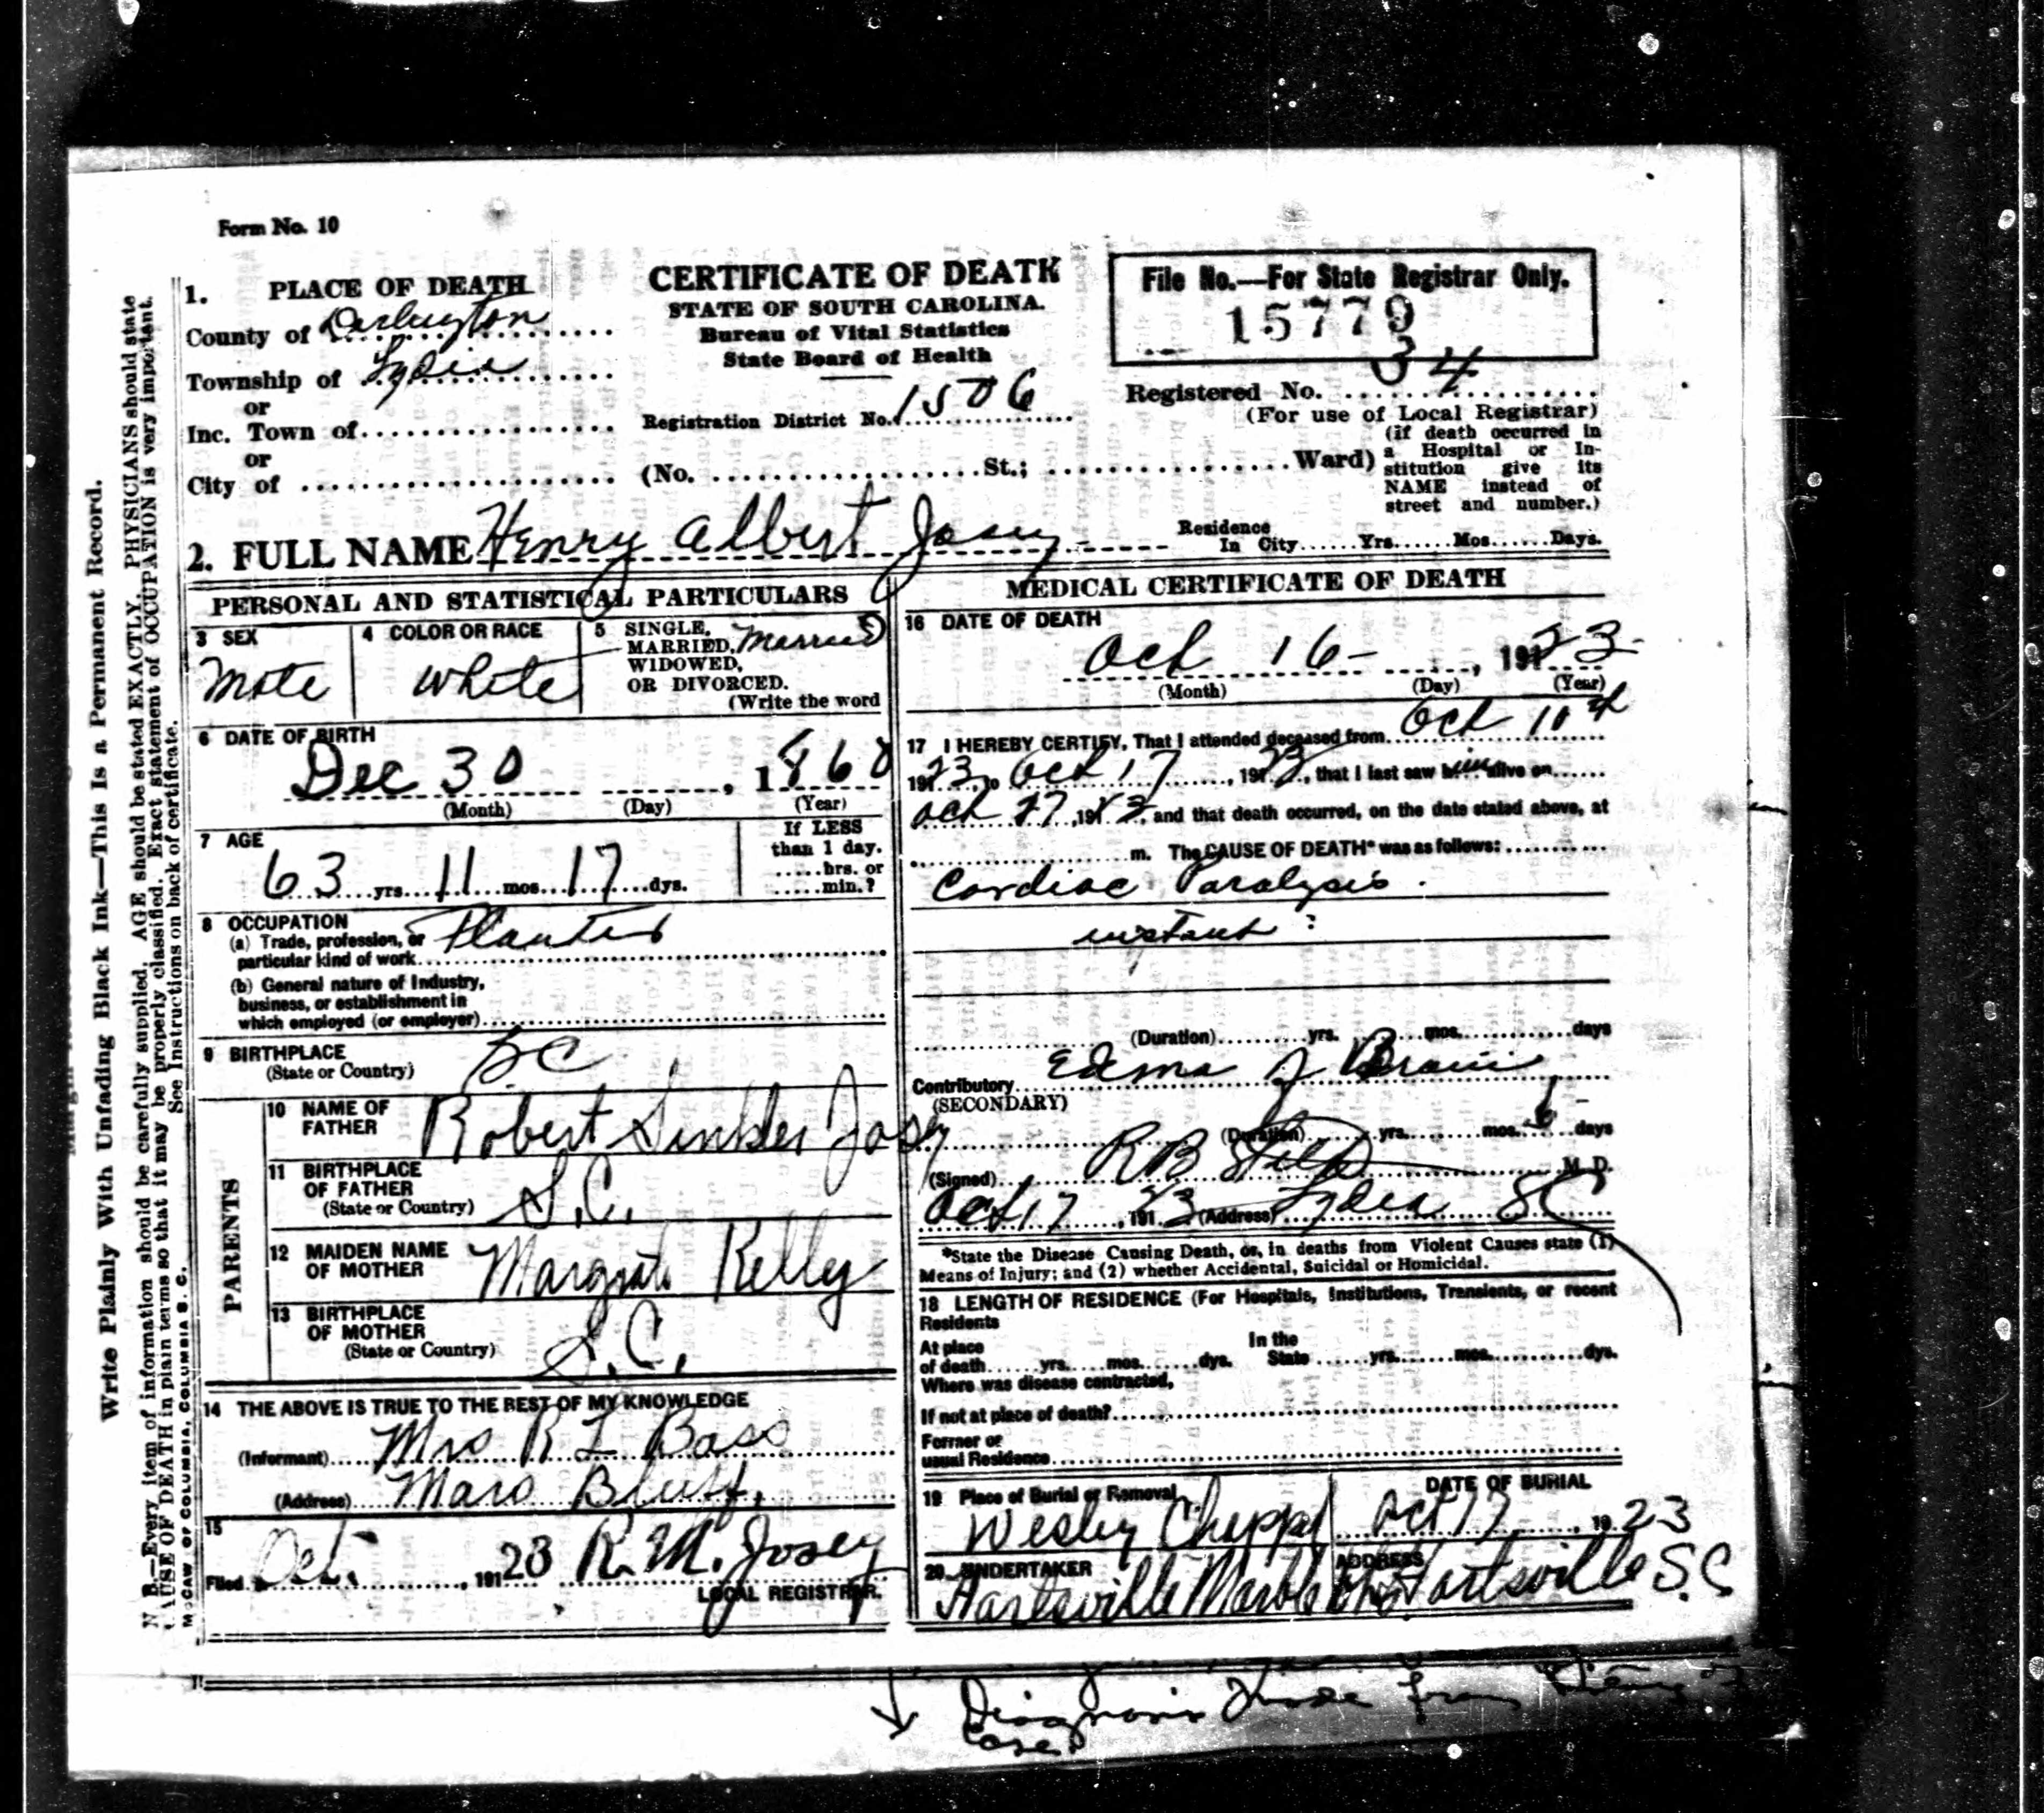 Form No. 10
1. PLACE OF DEATH
County of Darlington
Township of Lydia
or
Inc. Town of
or
City of
CERTIFICATE OF DEATH
STATE OF SOUTH CAROLINA.
Bureau of Vital Statistics
State Board of Health
Registration District No. 1506
(No. St.; Ward)
File No.—For State Registrar Only.
15779
Registered No. 34
(For use of Local Registrar)
(if death occurred in
a Hospital or In-
stitution give its
NAME instead of
street and number.)
2. FULL NAME Henry Albert Josey
Residence
In City Yrs. Mos. Days.
PERSONAL AND STATISTICAL PARTICULARS
3 SEX
Male
4 COLOR OR RACE
White
5 SINGLE,
MARRIED, Married
WIDOWED,
OR DIVORCED.
(Write the word
6 DATE OF BIRTH
Dec 30, 1860
(Month) (Day) (Year)
7 AGE
63 yrs. 11 mos. 17 dys.
If LESS
than 1 day.
hrs. or
min.?
8 OCCUPATION
(a) Trade, profession, or Planter
particular kind of work
(b) General nature of Industry,
business, or establishment in
which employed (or employer)
9 BIRTHPLACE
(State or Country) S C
PARENTS
10 NAME OF
FATHER Robert Sinkler Josey
11 BIRTHPLACE
OF FATHER
(State or Country) S.C.
12 MAIDEN NAME
OF MOTHER Margrate Kelley
13 BIRTHPLACE
OF MOTHER
(State or Country) S.C.
14 THE ABOVE IS TRUE TO THE BEST OF MY KNOWLEDGE
(Informant) Mrs R L Bass
(Address) Mars Bluff,
15
Filed Oct. , 1923 R. M. Josey
LOCAL REGISTRAR.
MEDICAL CERTIFICATE OF DEATH
16 DATE OF DEATH
Oct 16 - , 1923
(Month) (Day) (Year)
17 I HEREBY CERTIFY, That I attended deceased from Oct 10th
1923, to Oct 17, 1923, that I last saw him alive on
Oct 17, 1923, and that death occurred, on the date stated above, at
m. The CAUSE OF DEATH* was as follows:
Cardiac Paralysis.
instant
(Duration) yrs. mos. days
Contributory Edema of Brain
(SECONDARY)
(Duration) yrs. mos. 6 days
(Signed) R B M. D.
Oct 17, 1923 (Address) Lydia SC
*State the Disease Causing Death, or, in deaths from Violent Causes state (1)
Means of Injury; and (2) whether Accidental, Suicidal or Homicidal.
18 LENGTH OF RESIDENCE (For Hospitals, Institutions, Transients, or recent
Residents
At place
of death yrs. mos. dys. In the State yrs. mos. dys.
Where was disease contracted,
If not at place of death?
Former or
usual Residence
19 Place of Burial or Removal
Wesley Chappel
DATE OF BURIAL
Oct 17, 1923
20 UNDERTAKER
Hartsville Marble
ADDRESS
Hartsville S.C
Diagnosis made from
case
Write Plainly With Unfading Black Ink—This Is a Permanent Record.
N B.—Every item of information should be carefully supplied. AGE should be stated EXACTLY. PHYSICIANS should state
CAUSE OF DEATH in plain terms so that it may be properly classified. Exact statement of OCCUPATION is very important.
See Instructions on back of certificate.
M CAW OF COLUMBIA, COLUMBIA S. C.